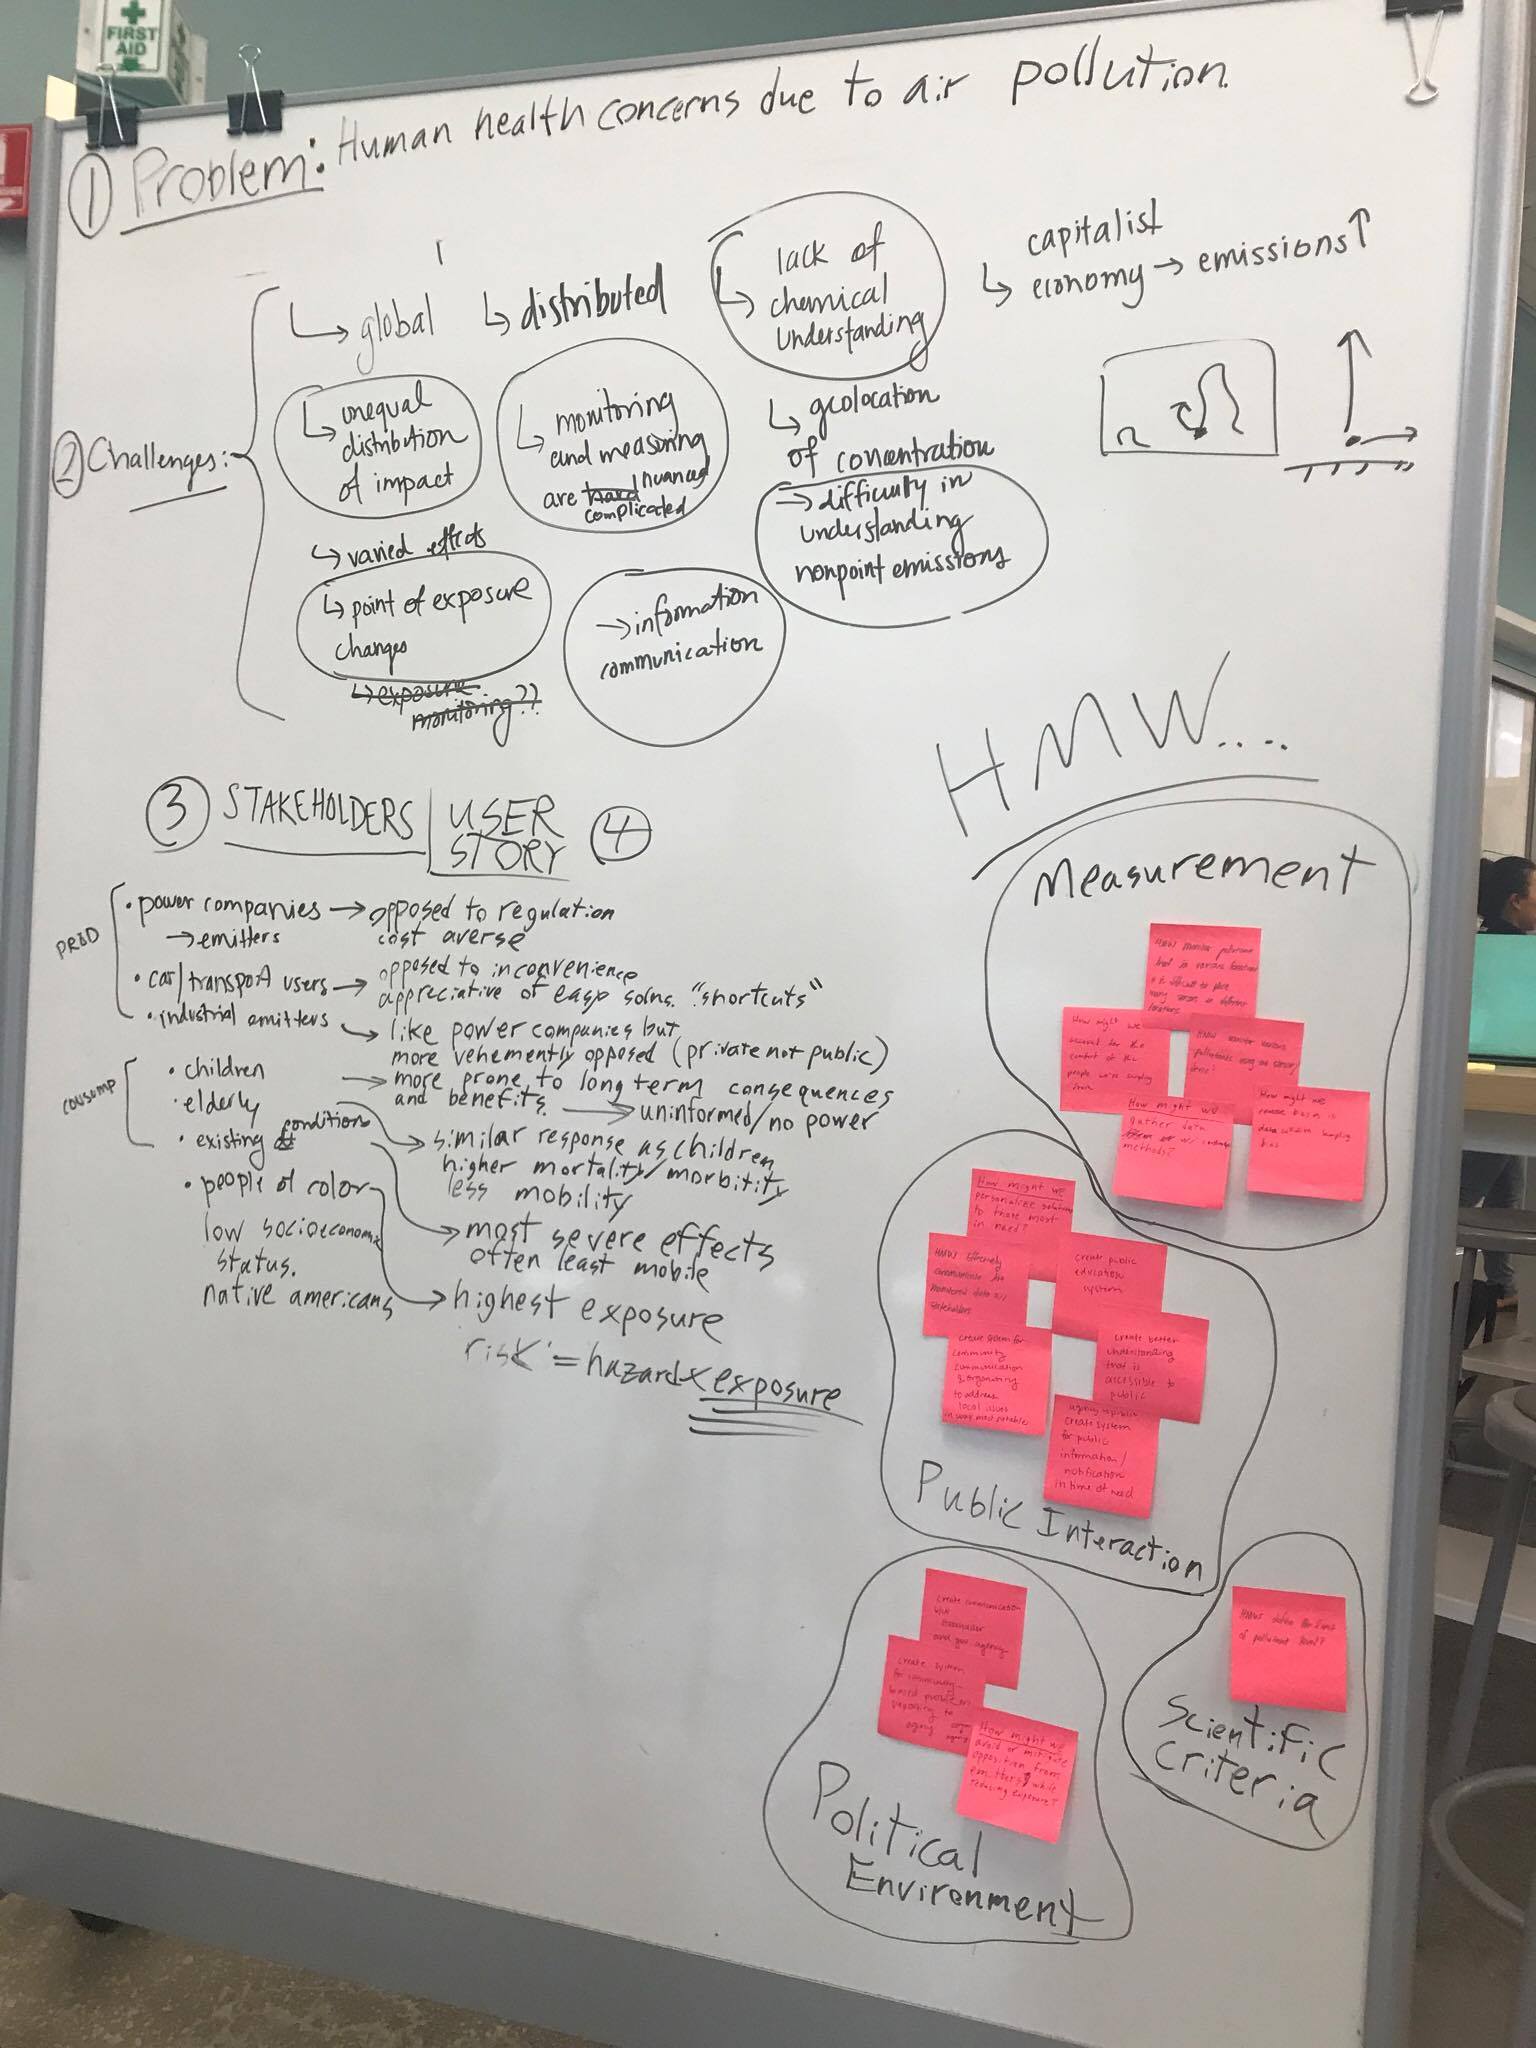 FIRST
AID
① Problem: Human health concerns due to air pollution.
② Challenges:
↳ global
↳ distributed
↳ lack of
chemical
understanding
↳ capitalist
economy → emissions ↑
↳ unequal
distribution
of impact
↳ monitoring
and measuring
are hard nuanced
complicated
↳ geolocation
of concentration
→ difficulty in
understanding
nonpoint emissions
↳ varied effects
↳ point of exposure
changes
↳ exposure
monitoring??
→ information
communication
③ STAKEHOLDERS | USER
STORY ④
PROD
• power companies → opposed to regulation
→ emitters cost averse
• car/transport users → opposed to inconvenience
appreciative of easy solns. "shortcuts"
• industrial emitters → like power companies but
more vehemently opposed (private not public)
consump
• children → more prone to long term consequences
and benefits. → uninformed/no power
• elderly → similar response as children
higher mortality/morbitity
less mobility
• existing condition → most severe effects
often least mobile
• people of color
low socioeconomic
status.
native americans → highest exposure
risk = hazard x exposure
HMW....
Measurement
HMW monitor
in various locations
difficult to place
many sensors in different
locations
How might we
account for the
comfort of the
people we're sampling
HMW monitor various
pollutants using one sensor
How might we
gather data
methods?
How might we
remove bias in
data sampling
bias
Public Interaction
How might we
personalize solutions
to those most
in need?
HMW effectively
communicate the
monitored data w/
stakeholders
create public
education
systems
create system for
community
communication
& organizing
to address
local issues
in way most suitable
create better
understanding
that is
accessible to
public
create system
for public
information/
notification
in time of need
Political
Environment
create communication
and gov agency
create system
for community
based problem
reporting to
agency
How might we
avoid or mitigate
opposition from
emitters while
reducing exposure?
Scientific
Criteria
HMW define the
of pollutant